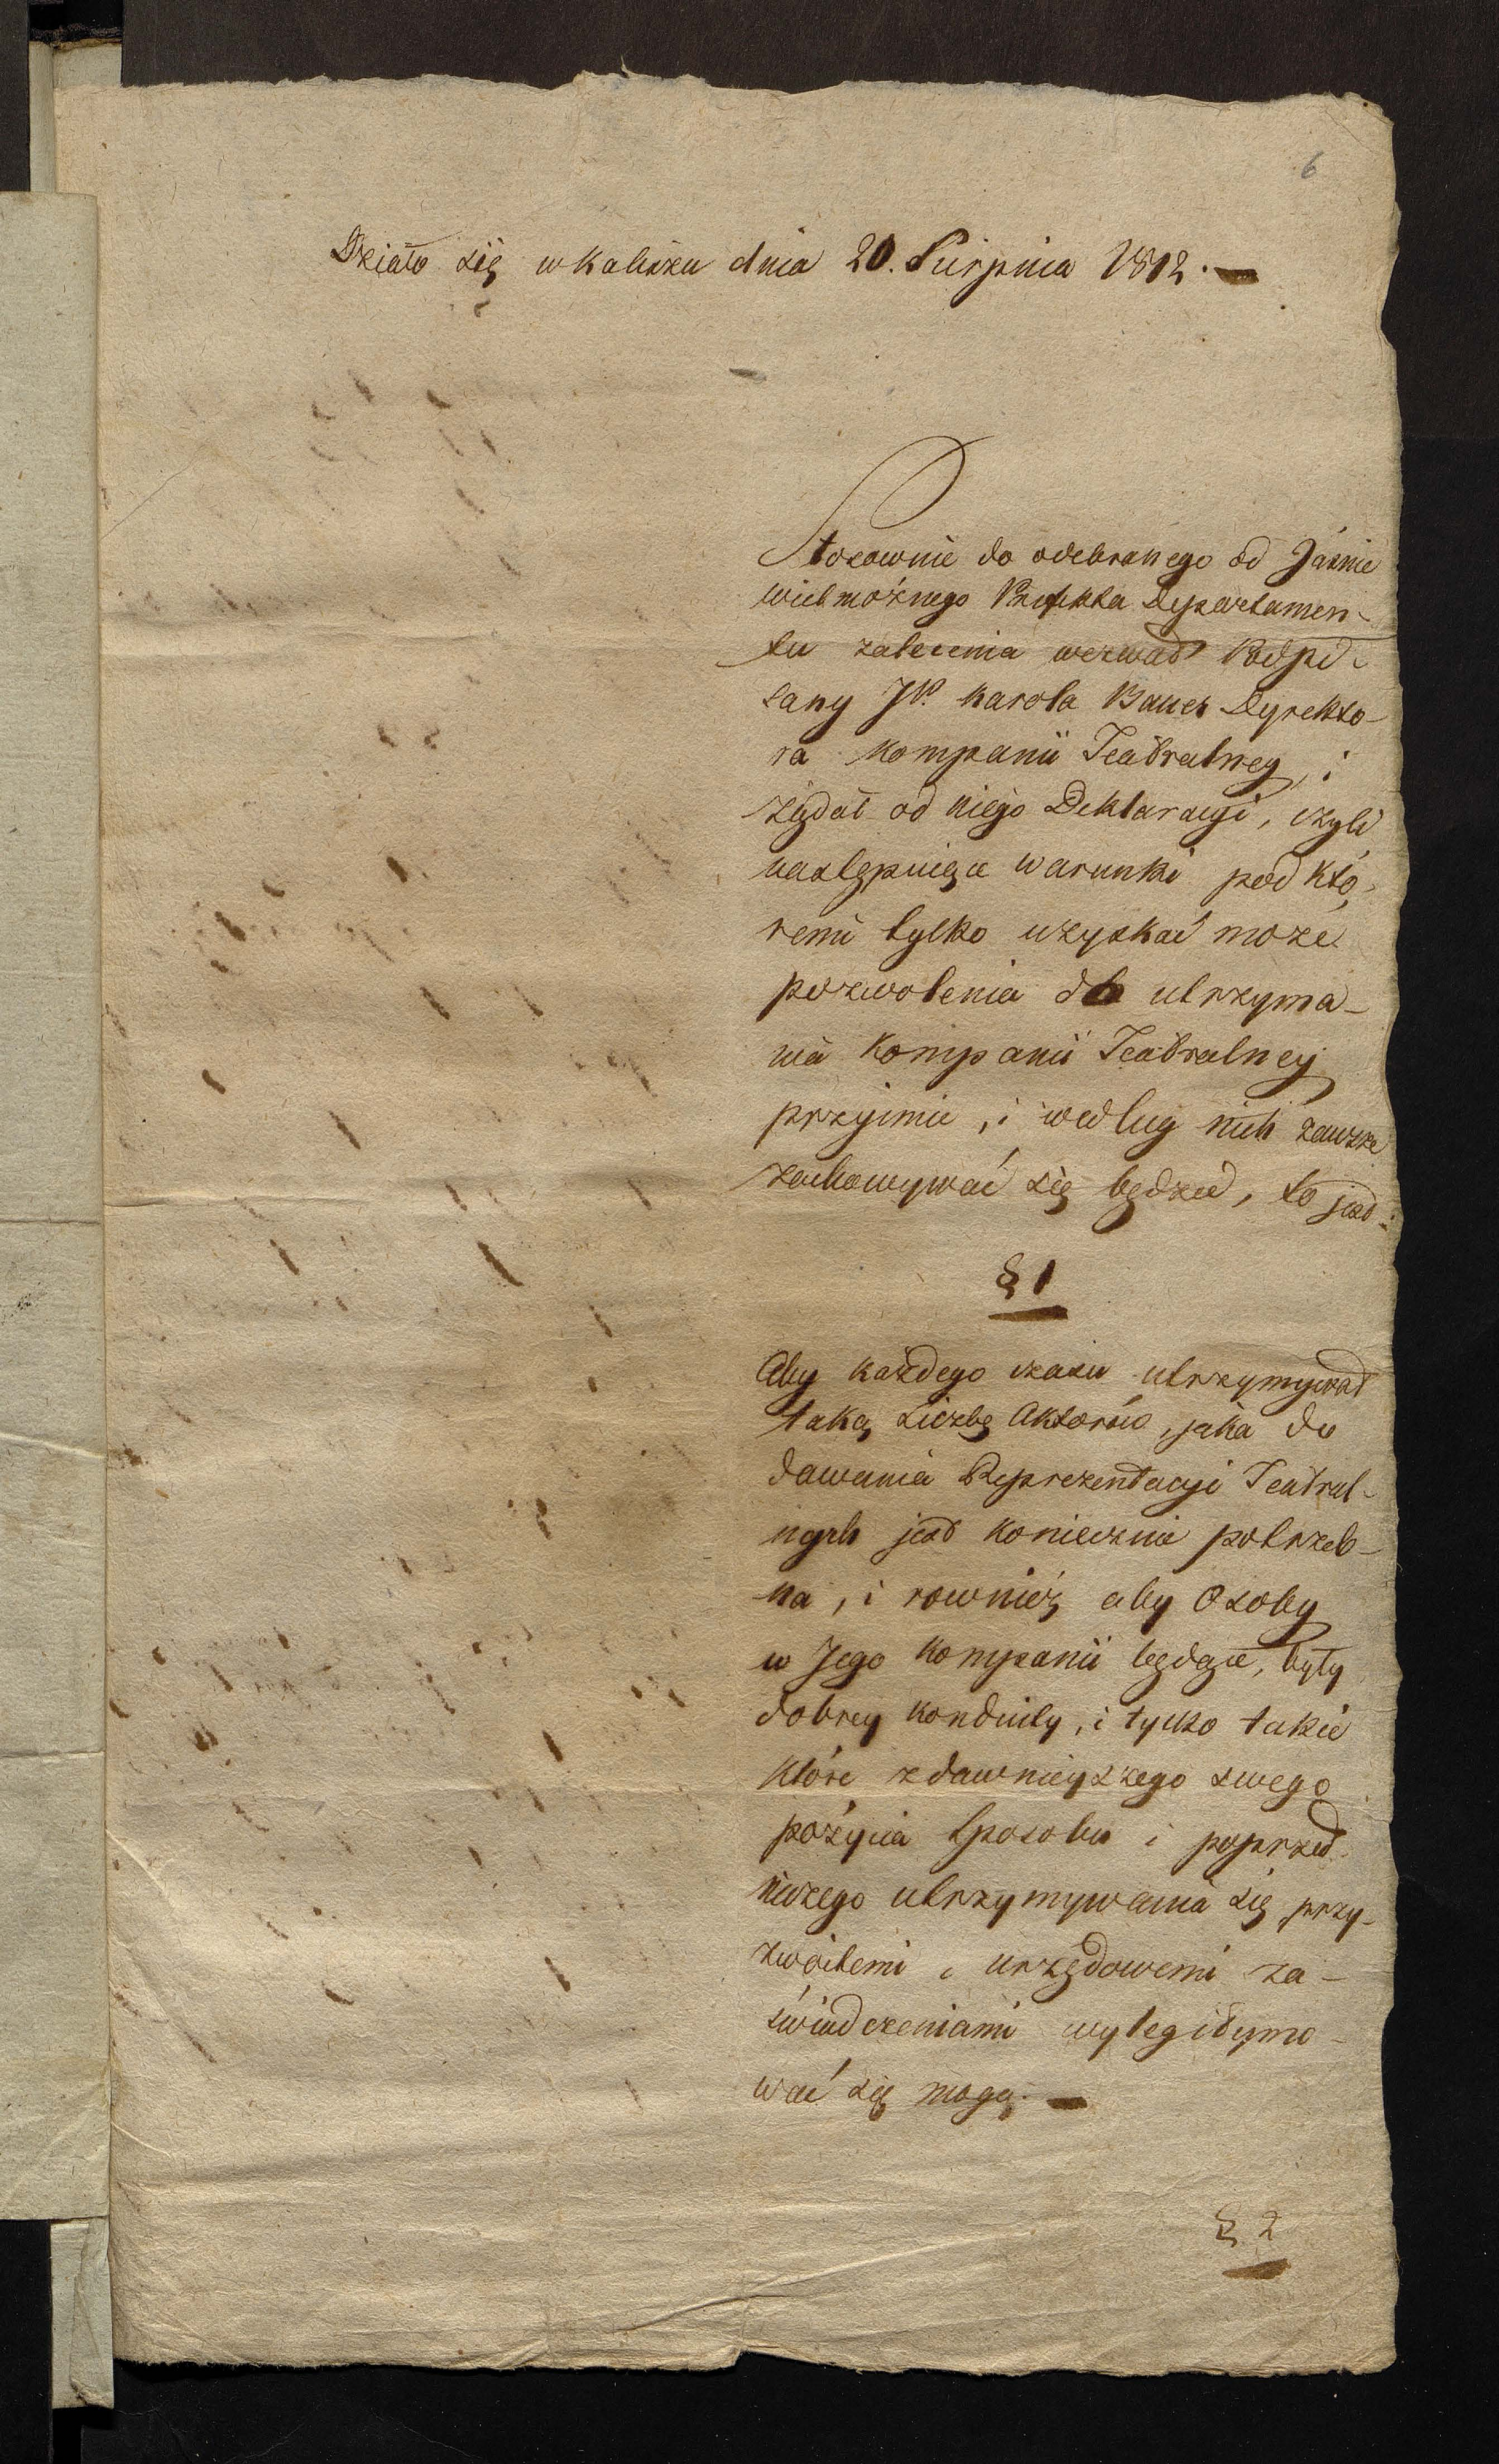 6
Działo się w Kaliszu dnia 20. Sierpnia 1812. —
Stosownie do odebranego od Jaśnie
wielmożnego Prefekta Departamen-
tu zalecenia wezwał Podpi-
sany JP. Karola Bauer Dyrekto-
ra Kompanii Teatralney, i
żądał od niego Deklaracyi, czyli
następuiące warunki pod któ-
remi tylko uzyskać może
pozwolenia do utrzyma-
nia Kompanii Teatralney
przyimie, i według nich zawsze
zachowywać się będzie, to jest:
§ 1
Aby każdego czasu utrzymywał
taką Liczbę Aktorów, jaka do
dawania Reprezentacyi Teatral-
nych jest koniecznie potrzeb-
na, i rownież aby Osoby
w Jego Kompanii będące, były
dobrey konduity, i tylko takie
które z dawnieyszego swego
pożycia sposobu i poprzed-
niczego utrzymywania się przy-
zwoitemi i urzędowemi za-
świadczeniami wylegitymo-
wać się mogą. —
§ 2